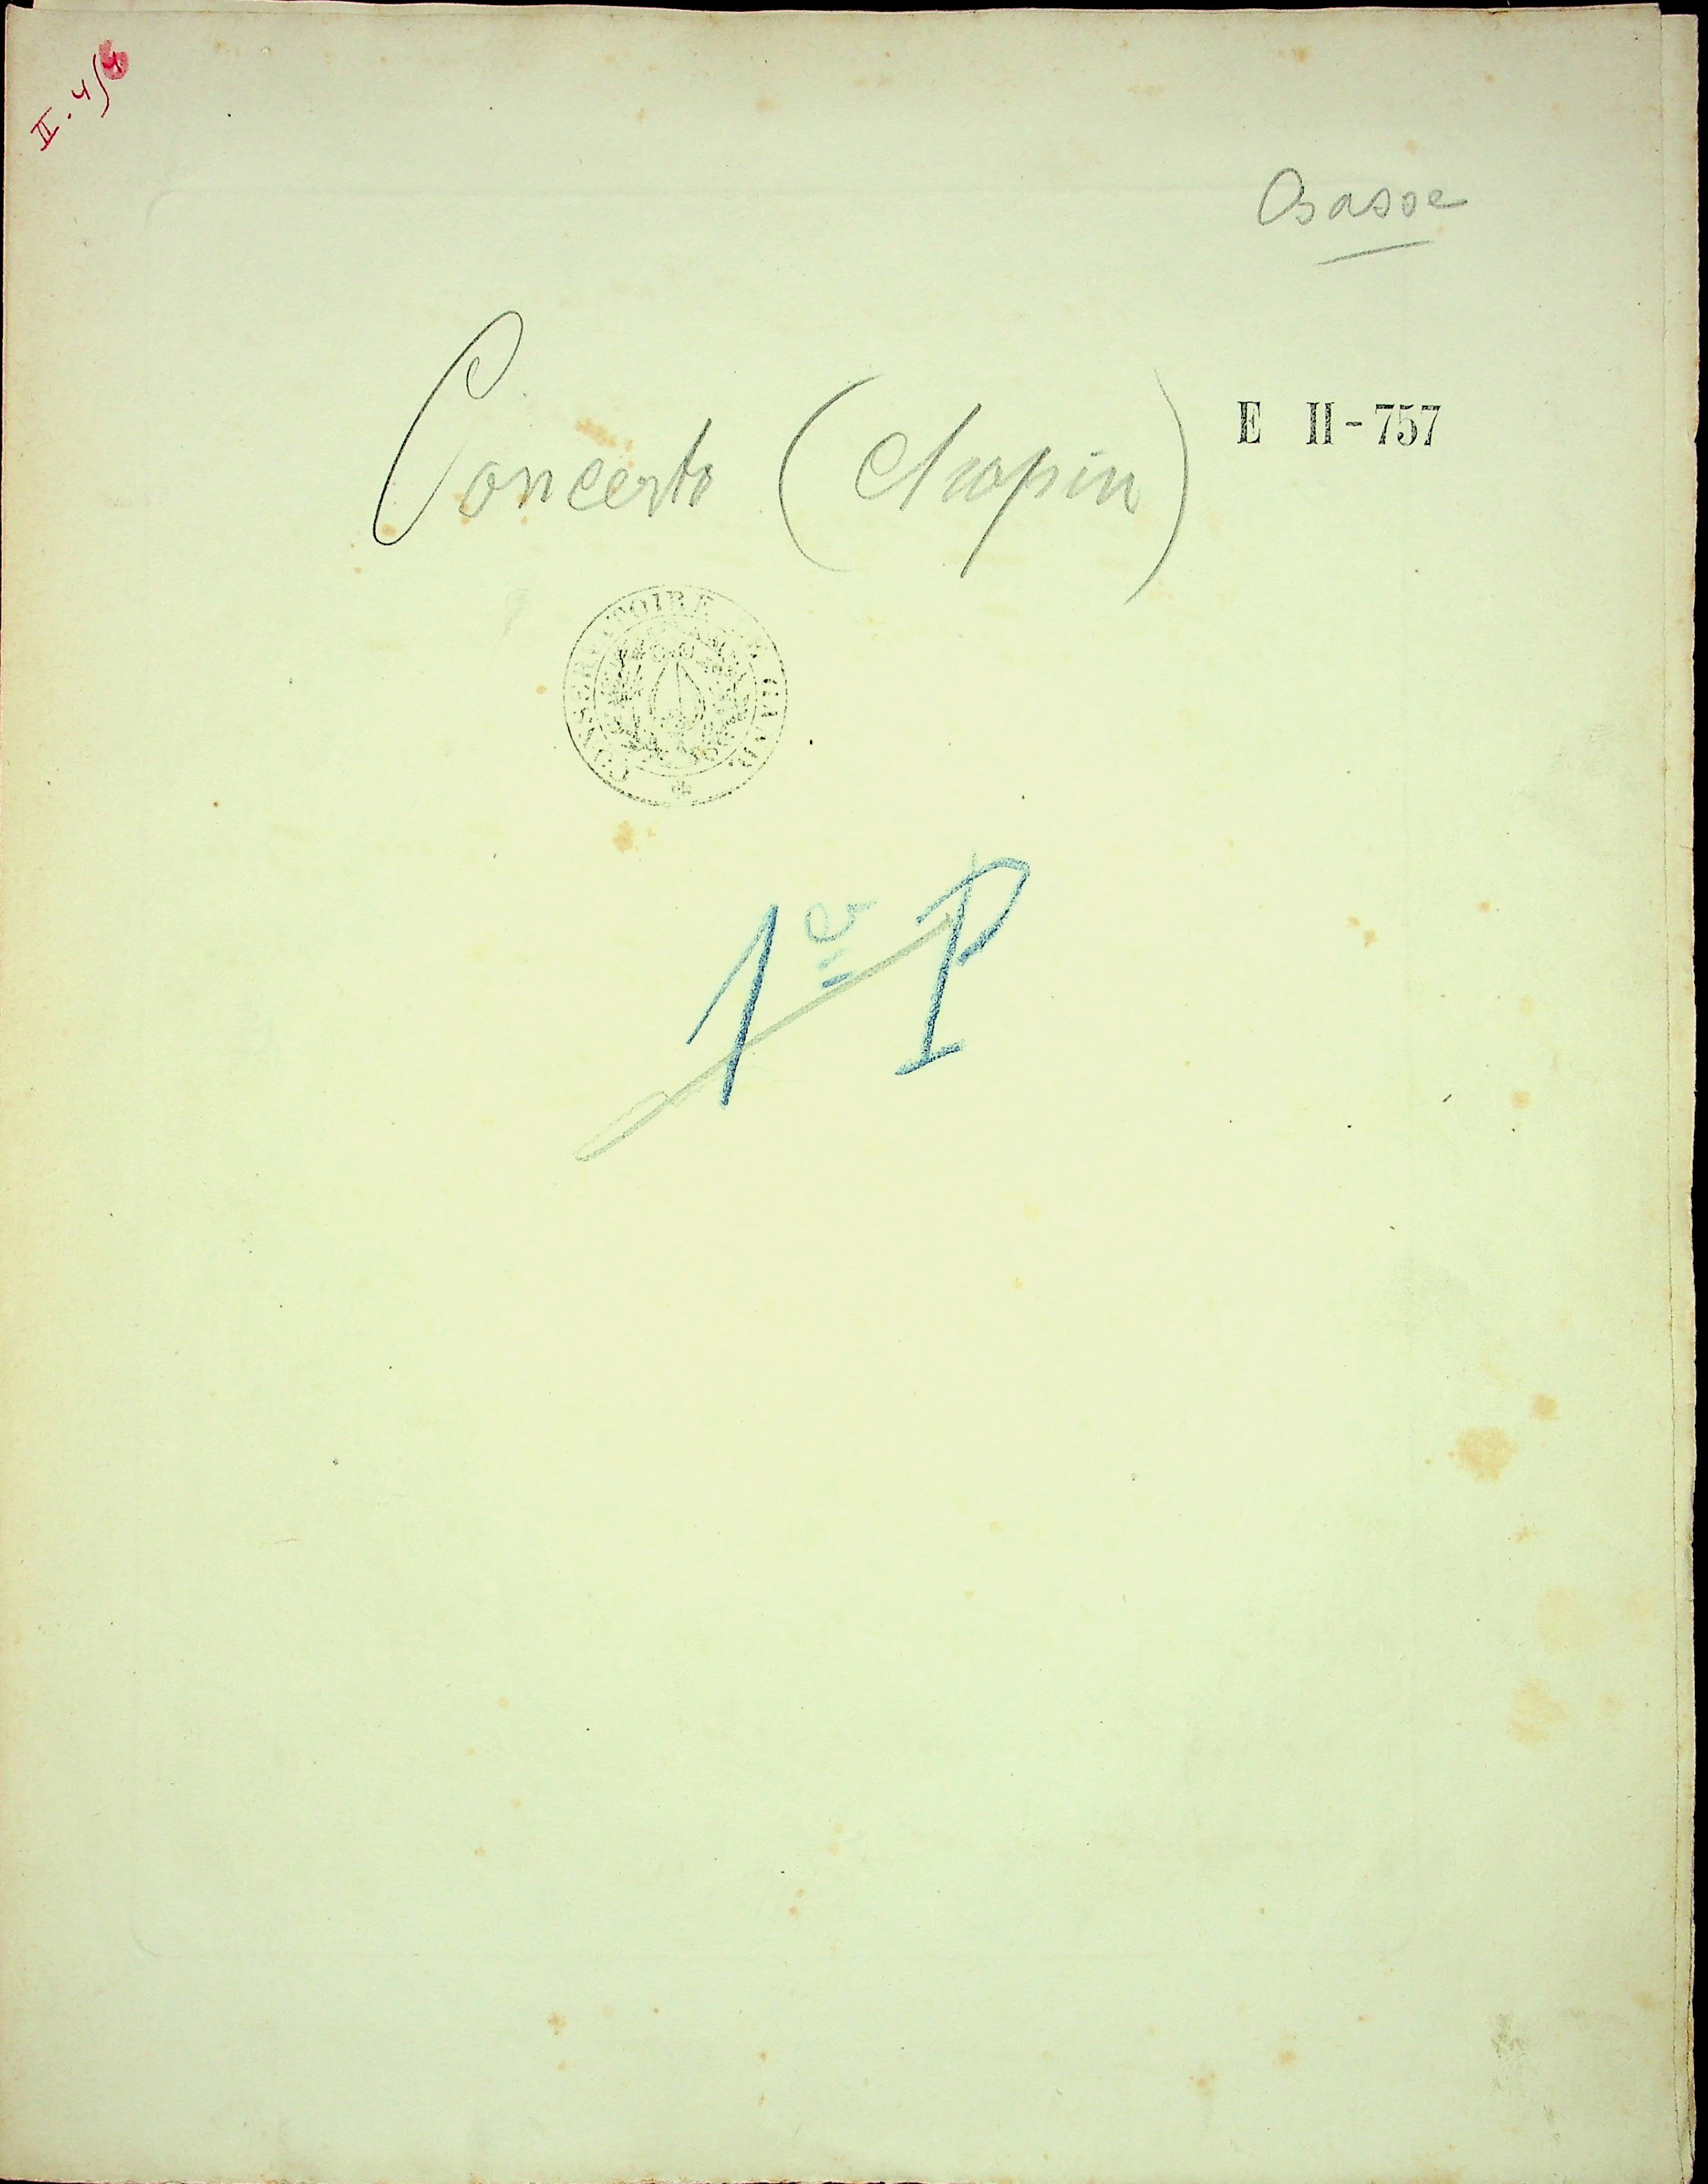 II. 4/4
Basse
Concerto (Chopin)
E II-757
CONSERVATOIRE
1e P